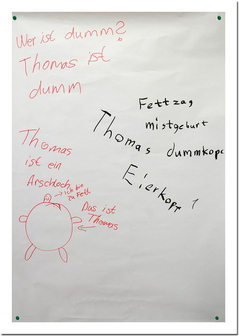 Wer ist dumm?
Thomas ist
dumm
Thomas
ist ein
Arschloch
ich bin
zu Fett
Das ist
Thomas
Fettzag
mistgeburt
Thomas dummkopf
Eierkopf !